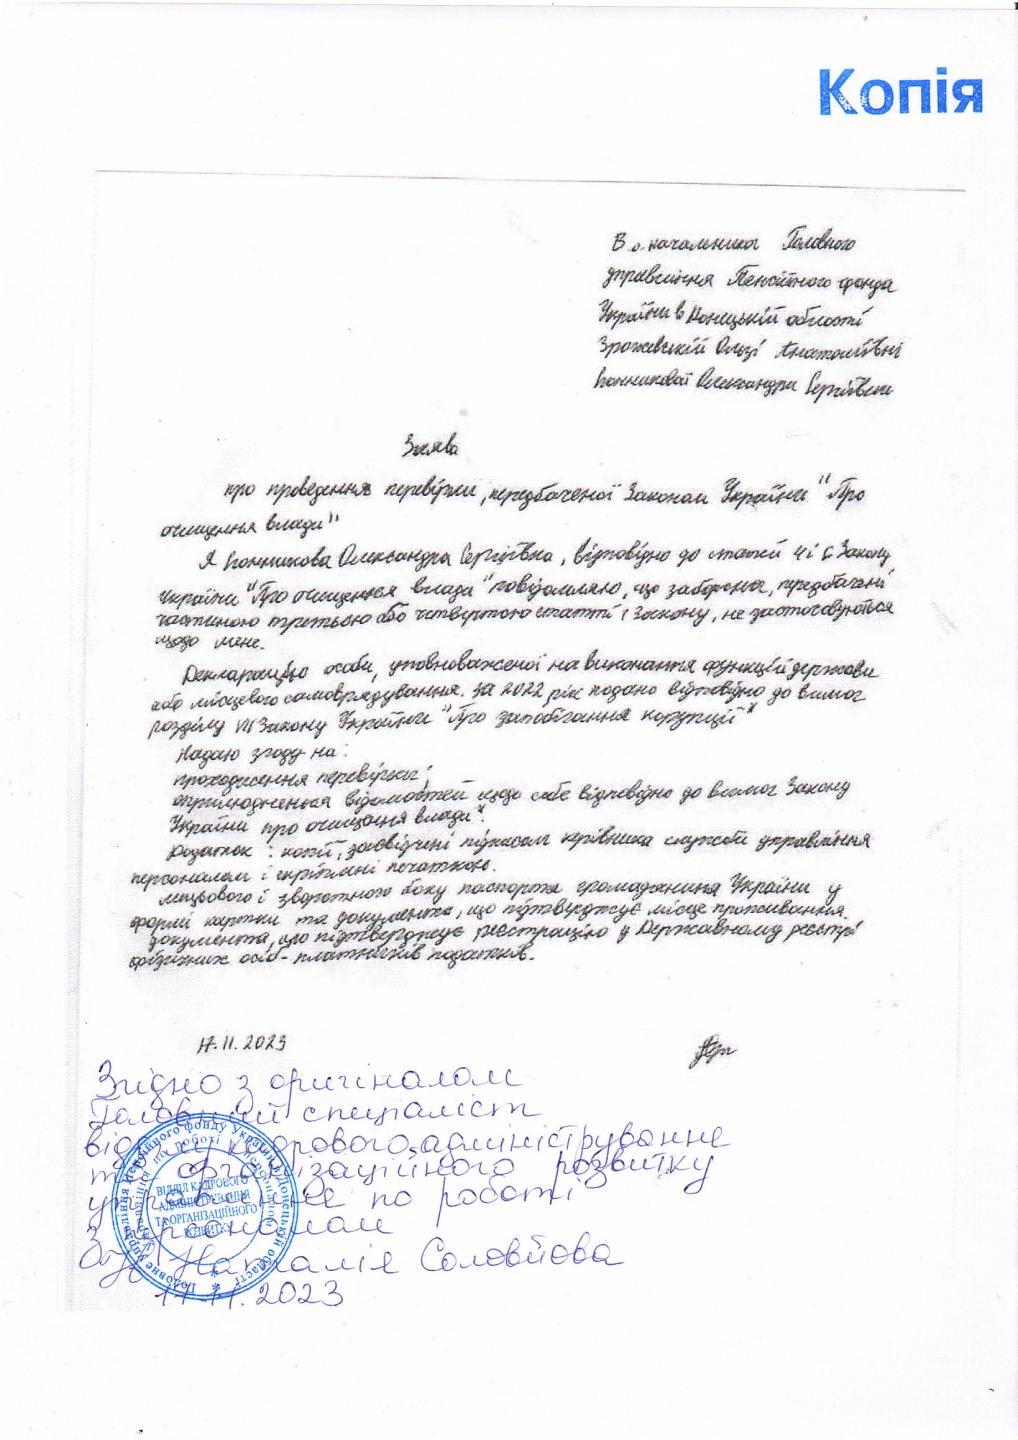 Копія
В.о. начальника Головного
управління Пенсійного фонда
України в Донецькій області
Зрожевській Ользі Анатоліївні
Олександри Сергіївни
Заява
про проведення перевірки, передбаченої Законом України "Про
очищення влади"
Я Олександра Сергіївна, відповідно до статей 4 і 6 Закону
України "Про очищення влади" повідомляю, що заборона, передбачені
частиною третьою або четвертою статті 1 Закону, не застосовуються
щодо мене.
Декларацію особи, уповноваженої на виконання функцій держави
або місцевого самоврядування. за 2022 рік подано відповідно до вимог
розділу VII Закону України "Про запобігання корупції"
Надаю згоду на:
проходження перевірки;
оприлюднення відомостей щодо себе відповідно до вимог Закону
України про очищення влади".
Додаток: копії, засвідчені підписом керівника служби управління
персоналом і скріплені печаткою.
лицьового і зворотного боку паспорта громадянина України у
формі картки та документа, що підтверджує місце проживання.
документа, що підтверджує реєстрацію у Державному реєстрі
фізичних осіб - платників податків.
17.11.2023
Згідно з оригіналом
Головний спеціаліст
відділу кадрового адміністрування
та організаційного розвитку
управління по роботі
з персоналом
Наталія Соловйова
17.11.2023
Головне управління Пенсійного фонду України в Донецькій області
Управління по роботі з персоналом
ВІДДІЛ КАДРОВОГО
АДМІНІСТРУВАННЯ
ТА ОРГАНІЗАЦІЙНОГО
РОЗВИТКУ